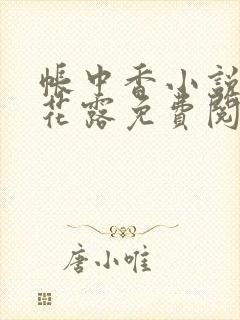 帳中香小說
花露免費閱
唐小唯